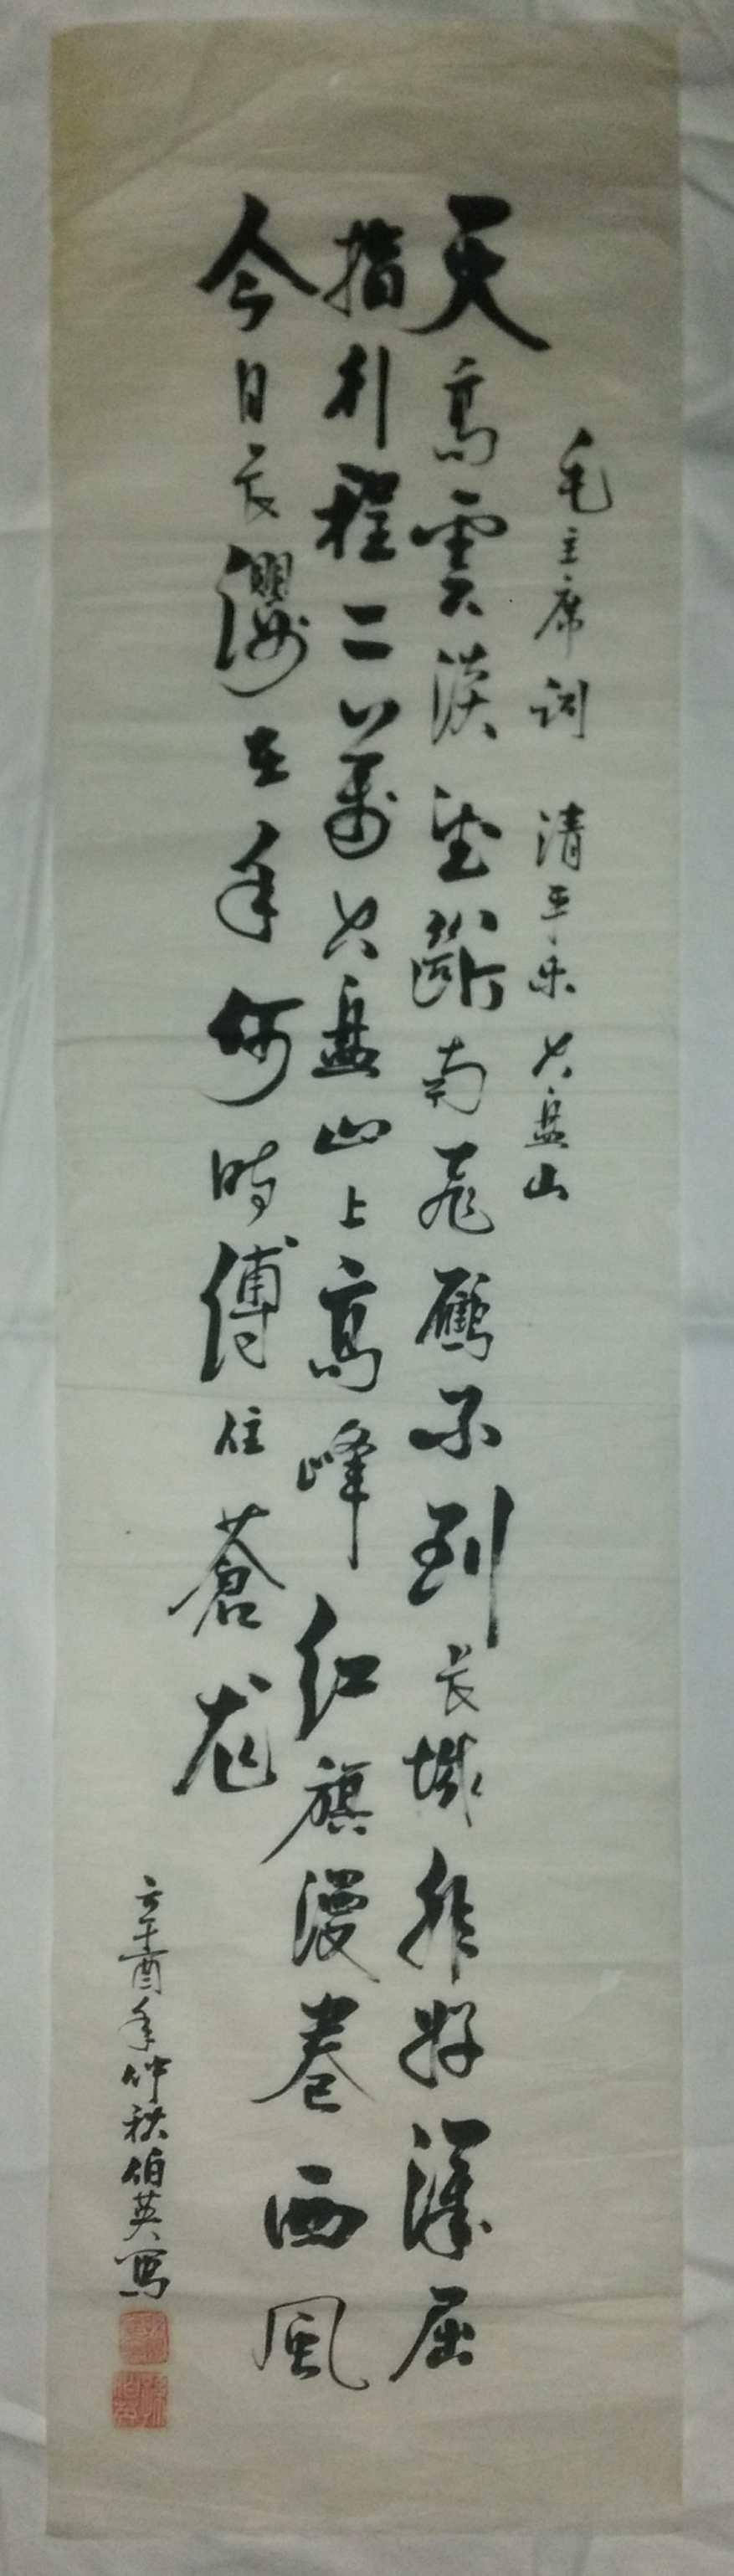 毛主席词 清平乐 六盘山
天高雲淡望斷南飛雁不到长城非好漢屈
指行程二萬六盘山上高峰红旗漫卷西風
今日长纓在手何時縛住蒼龙
辛酉年仲秋伯英寫